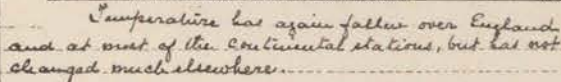 Temperature has again fallen over England
and at most of the continental stations, but has not
changed much elsewhere.